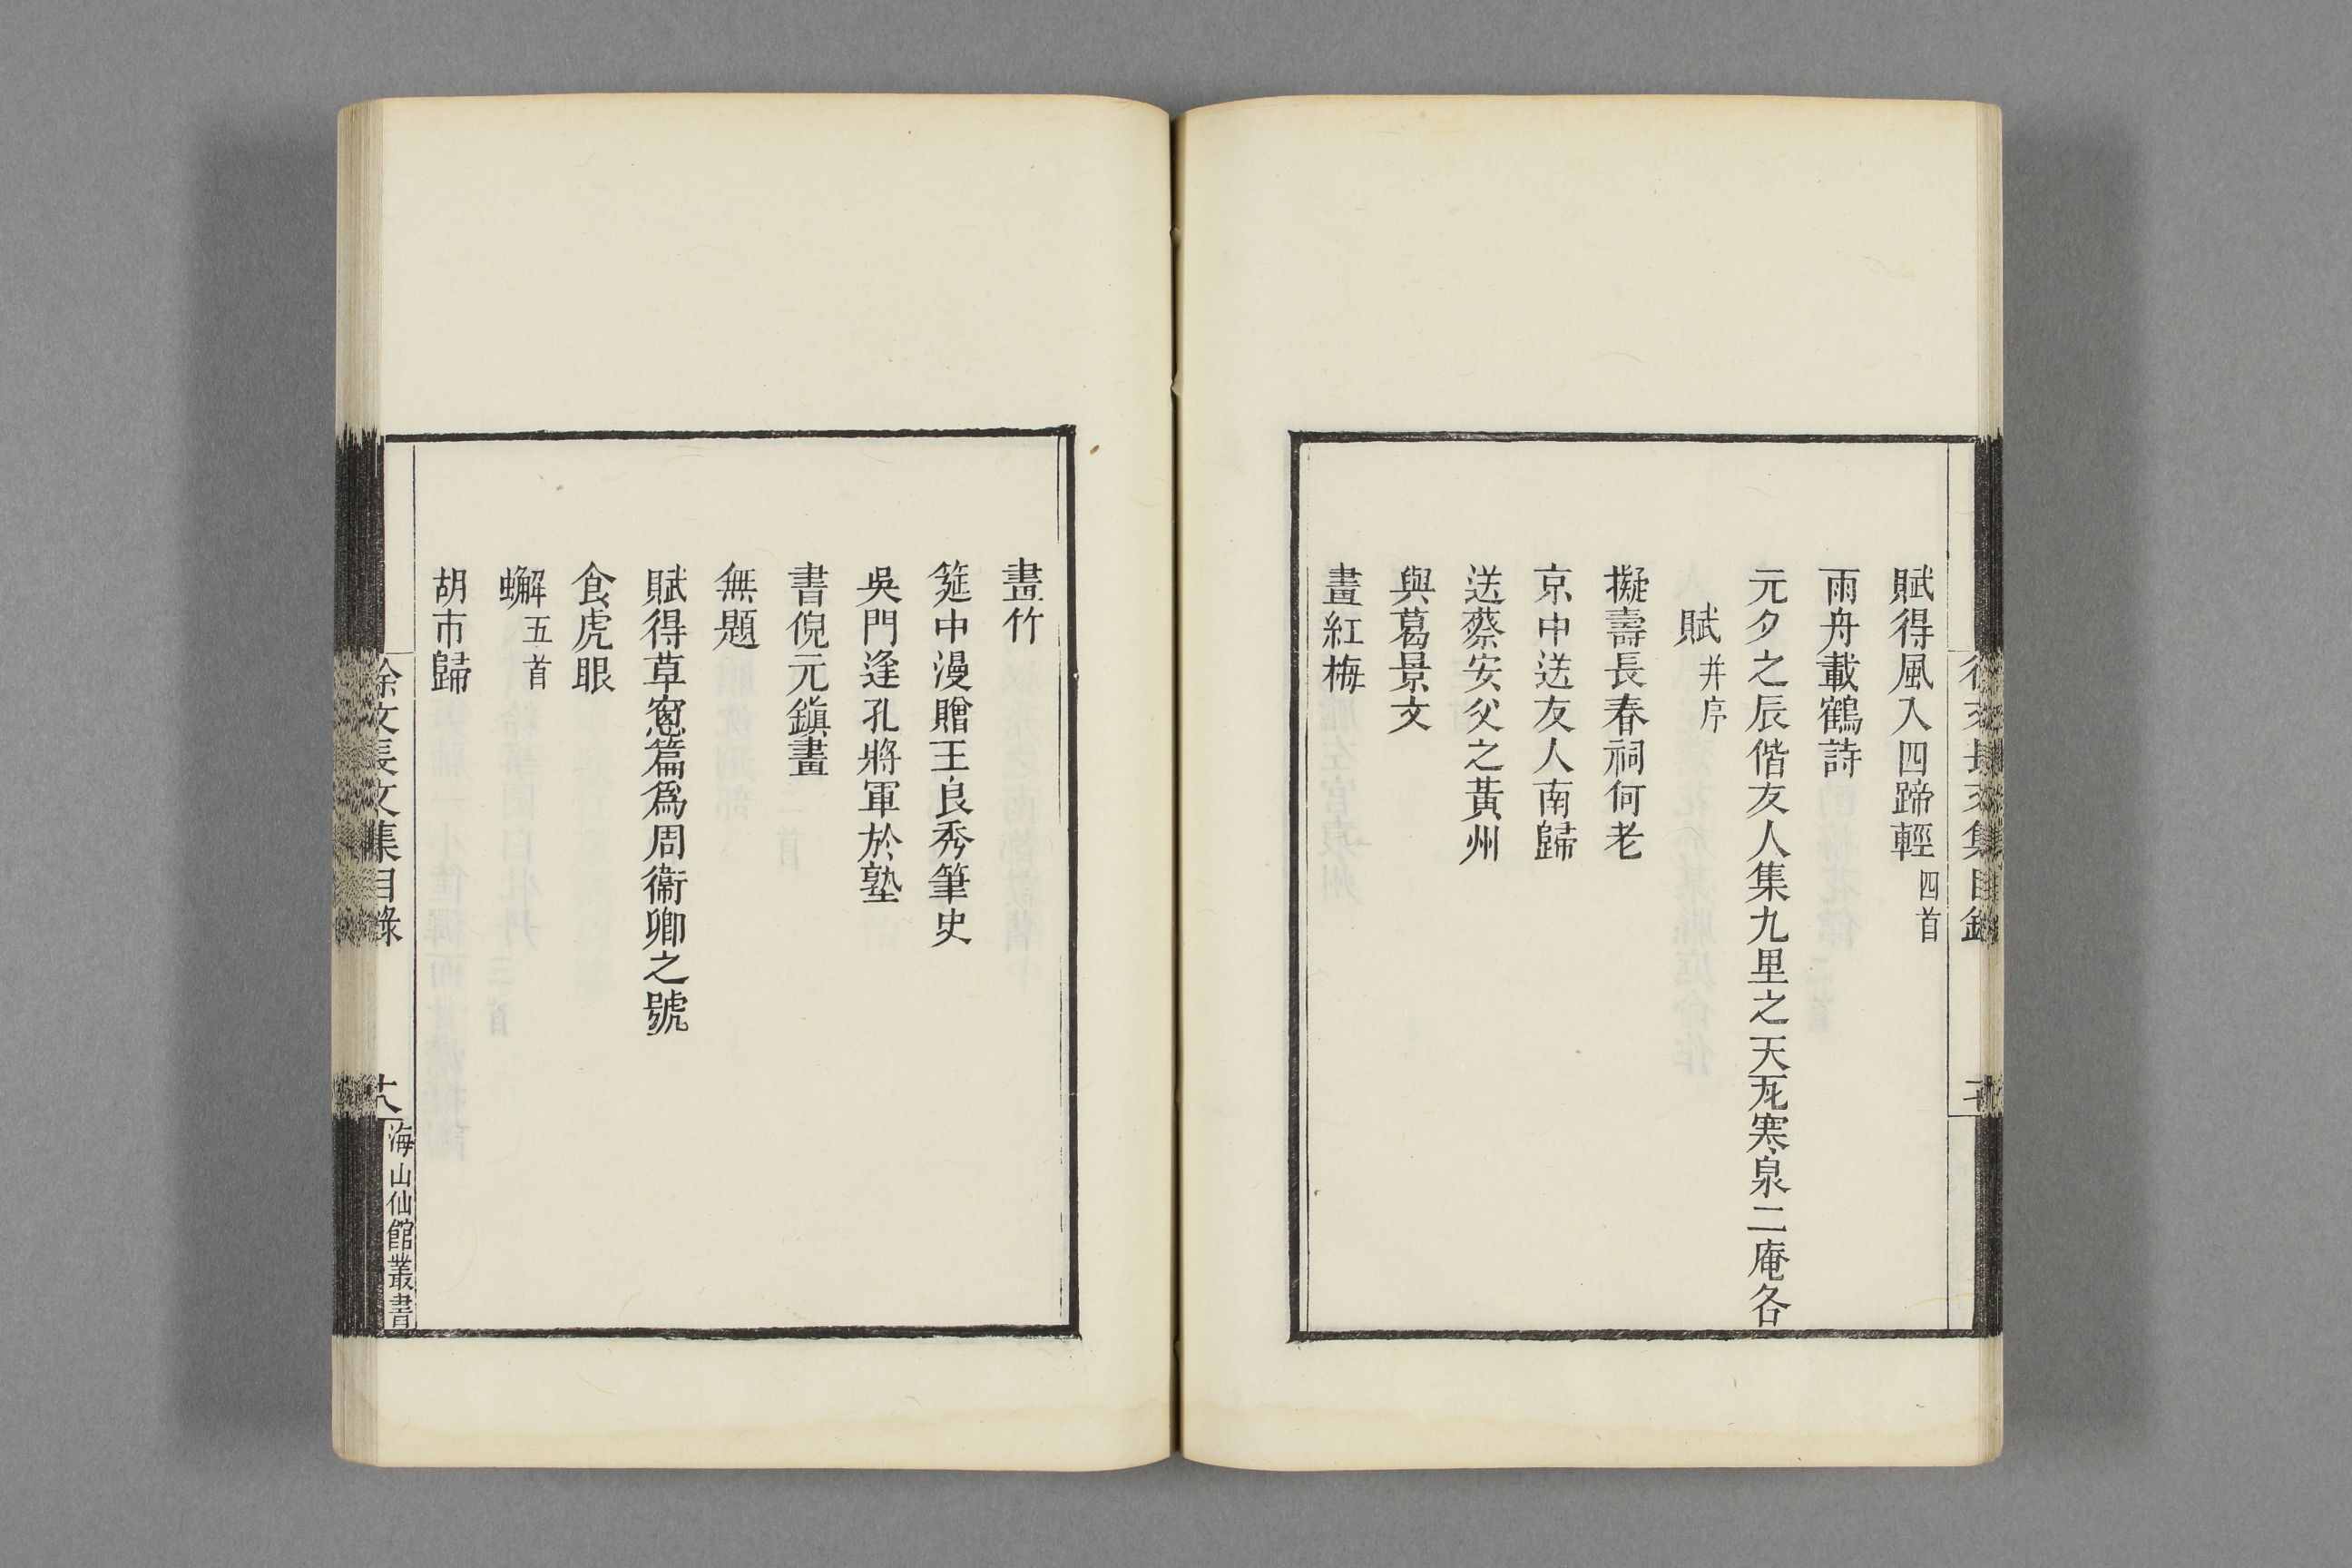 賦得風入四蹄輕 四首
雨舟載鶴詩
元夕之辰偕友人集九里之天瓦寒泉二庵各
賦 并序
擬壽長春祠何老
京中送友人南歸
送蔡安父之黃州
與葛景文
畫紅梅
畫竹
筵中漫贈王良秀筆史
吳門逢孔將軍於塾
書倪元鎮畫
無題
賦得草窻篇爲周衞卿之號
食虎眼
蠏 五首
胡市歸
徐文長文集目錄
海山仙館叢書